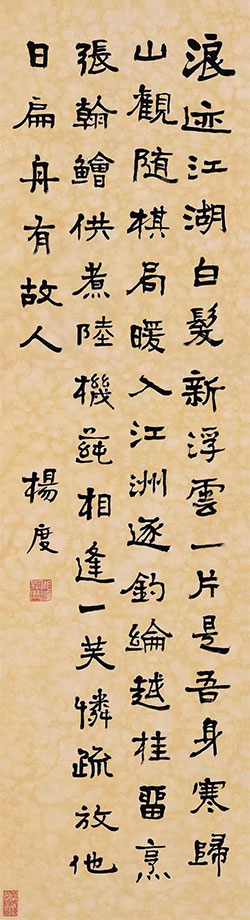 浪迹江湖白髮新浮雲一片是吾身寒歸
山觀随棋局暖入江洲逐釣綸越桂留烹
張翰鱠供煮陸機蒓相逢一笑憐疏放他
日扁舟有故人
楊度